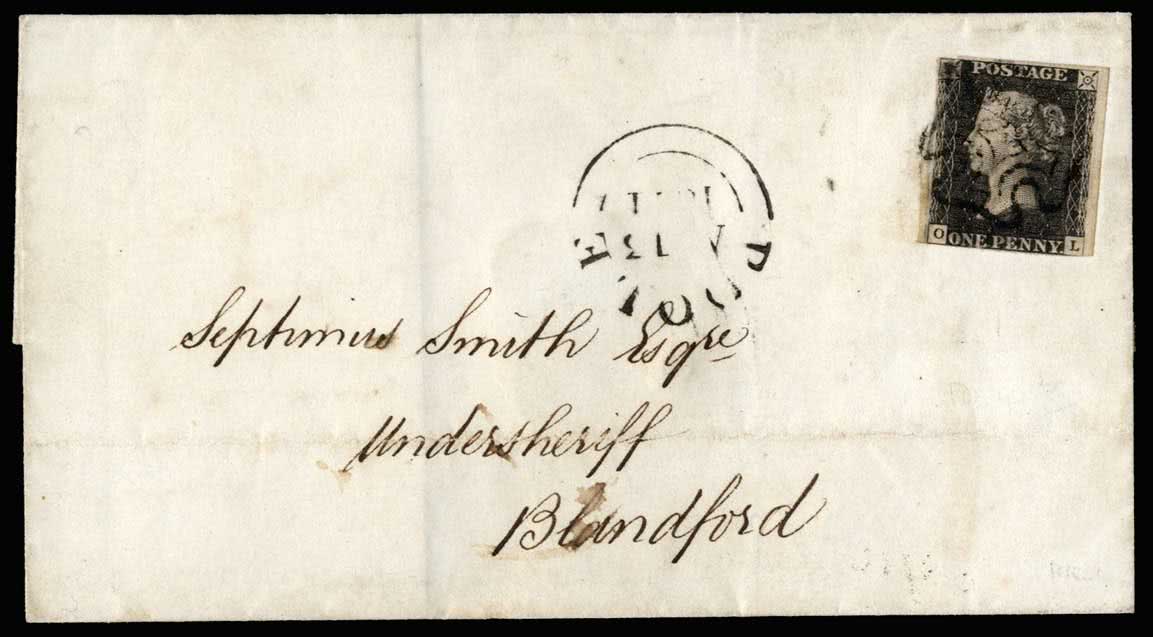 POSTAGE
O ONE PENNY L
POOLE
Septimus Smith Esqre
Undersheriff
Blandford